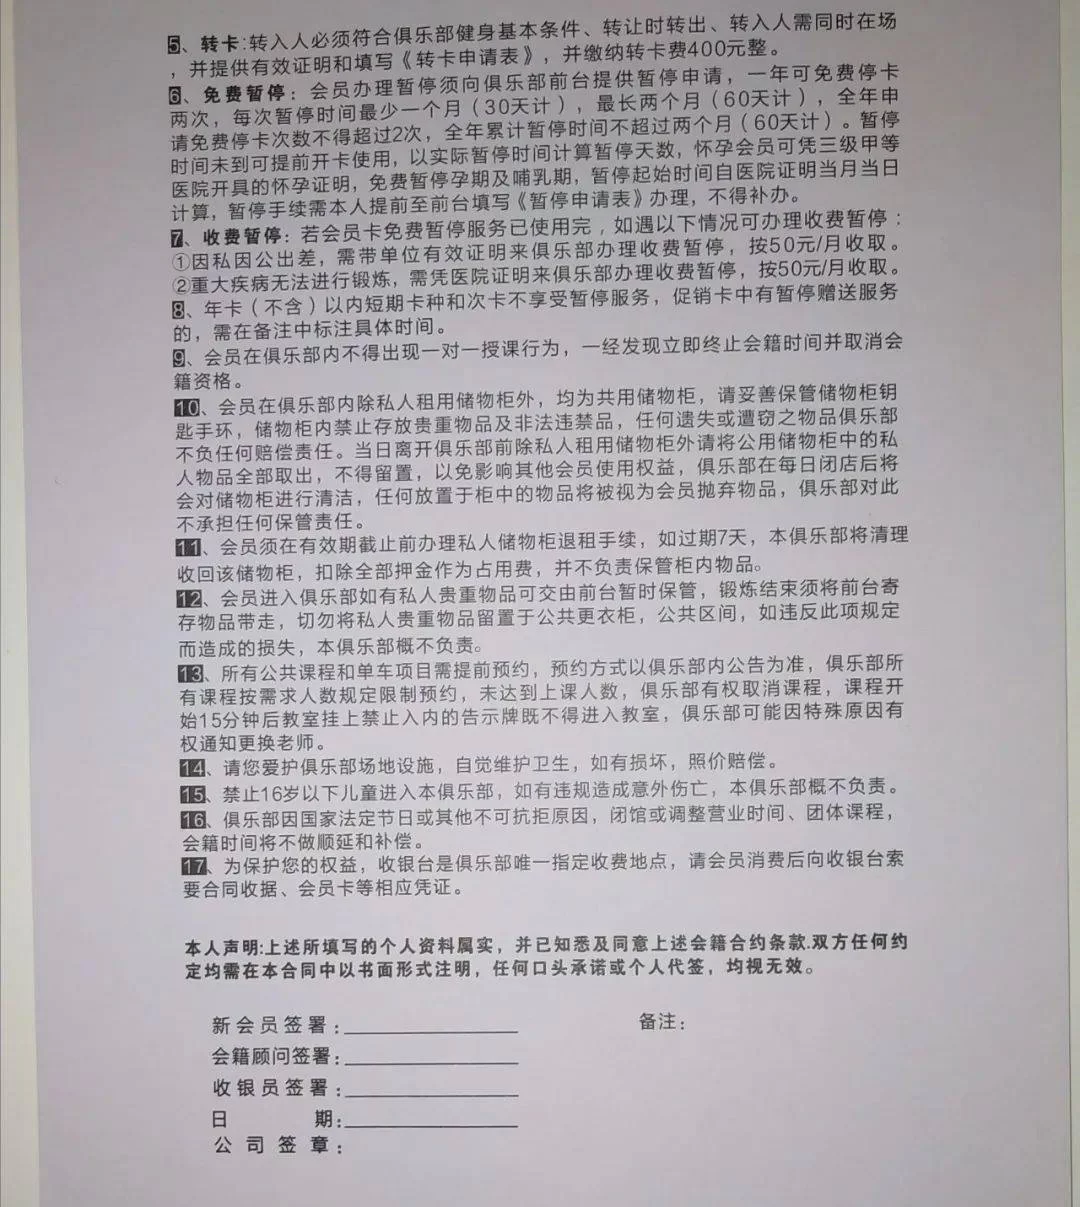 5、转卡:转入人必须符合俱乐部健身基本条件、转让时转出、转入人需同时在场
，并提供有效证明和填写《转卡申请表》，并缴纳转卡费400元整。
6、免费暂停：会员办理暂停须向俱乐部前台提供暂停申请，一年可免费停卡
两次，每次暂停时间最少一个月（30天计），最长两个月（60天计），全年申
请免费停卡次数不得超过2次，全年累计暂停时间不超过两个月（60天计）。暂停
时间未到可提前开卡使用，以实际暂停时间计算暂停天数，怀孕会员可凭三级甲等
医院开具的怀孕证明，免费暂停孕期及哺乳期，暂停起始时间自医院证明当月当日
计算，暂停手续需本人提前至前台填写《暂停申请表》办理，不得补办。
7、收费暂停：若会员卡免费暂停服务已使用完，如遇以下情况可办理收费暂停：
①因私因公出差，需带单位有效证明来俱乐部办理收费暂停，按50元/月收取。
②重大疾病无法进行锻炼，需凭医院证明来俱乐部办理收费暂停，按50元/月收取。
8、年卡（不含）以内短期卡种和次卡不享受暂停服务，促销卡中有暂停赠送服务
的，需在备注中标注具体时间。
9、会员在俱乐部内不得出现一对一授课行为，一经发现立即终止会籍时间并取消会
籍资格。
10、会员在俱乐部内除私人租用储物柜外，均为共用储物柜，请妥善保管储物柜钥
匙手环，储物柜内禁止存放贵重物品及非法违禁品，任何遗失或遭窃之物品俱乐部
不负任何赔偿责任。当日离开俱乐部前除私人租用储物柜外请将公用储物柜中的私
人物品全部取出，不得留置，以免影响其他会员使用权益，俱乐部在每日闭店后将
会对储物柜进行清洁，任何放置于柜中的物品将被视为会员抛弃物品，俱乐部对此
不承担任何保管责任。
11、会员须在有效期截止前办理私人储物柜退租手续，如过期7天，本俱乐部将清理
收回该储物柜，扣除全部押金作为占用费，并不负责保管柜内物品。
12、会员进入俱乐部如有私人贵重物品可交由前台暂时保管，锻炼结束须将前台寄
存物品带走，切勿将私人贵重物品留置于公共更衣柜，公共区间，如违反此项规定
而造成的损失，本俱乐部概不负责。
13、所有公共课程和单车项目需提前预约，预约方式以俱乐部内公告为准，俱乐部所
有课程按需求人数规定限制预约，未达到上课人数，俱乐部有权取消课程，课程开
始15分钟后教室挂上禁止入内的告示牌既不得进入教室，俱乐部可能因特殊原因有
权通知更换老师。
14、请您爱护俱乐部场地设施，自觉维护卫生，如有损坏，照价赔偿。
15、禁止16岁以下儿童进入本俱乐部，如有违规造成意外伤亡，本俱乐部概不负责。
16、俱乐部因国家法定节日或其他不可抗拒原因，闭馆或调整营业时间、团体课程，
会籍时间将不做顺延和补偿。
17、为保护您的权益，收银台是俱乐部唯一指定收费地点，请会员消费后向收银台索
要合同收据、会员卡等相应凭证。
本人声明:上述所填写的个人资料属实，并已知悉及同意上述会籍合约条款.双方任何约
定均需在本合同中以书面形式注明，任何口头承诺或个人代签，均视无效。
新会员签署：
备注：
会籍顾问签署：
收银员签署：
日 期：
公司签章：